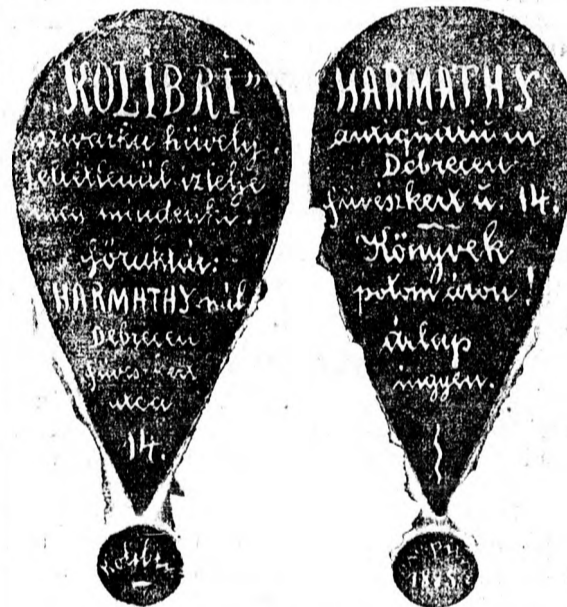 „KOLIBRI”
szivarka hüvely.
feltétlenül izlelje
meg mindenki.
főraktár:
HARMATHY nál
Debrecen
füvészkert
utca
14.
Kolibri
HARMATHY
antiquárium
Debrecen
füvészkert u. 14.
Könyvek
potom áron!
árlap
ingyen.
1885